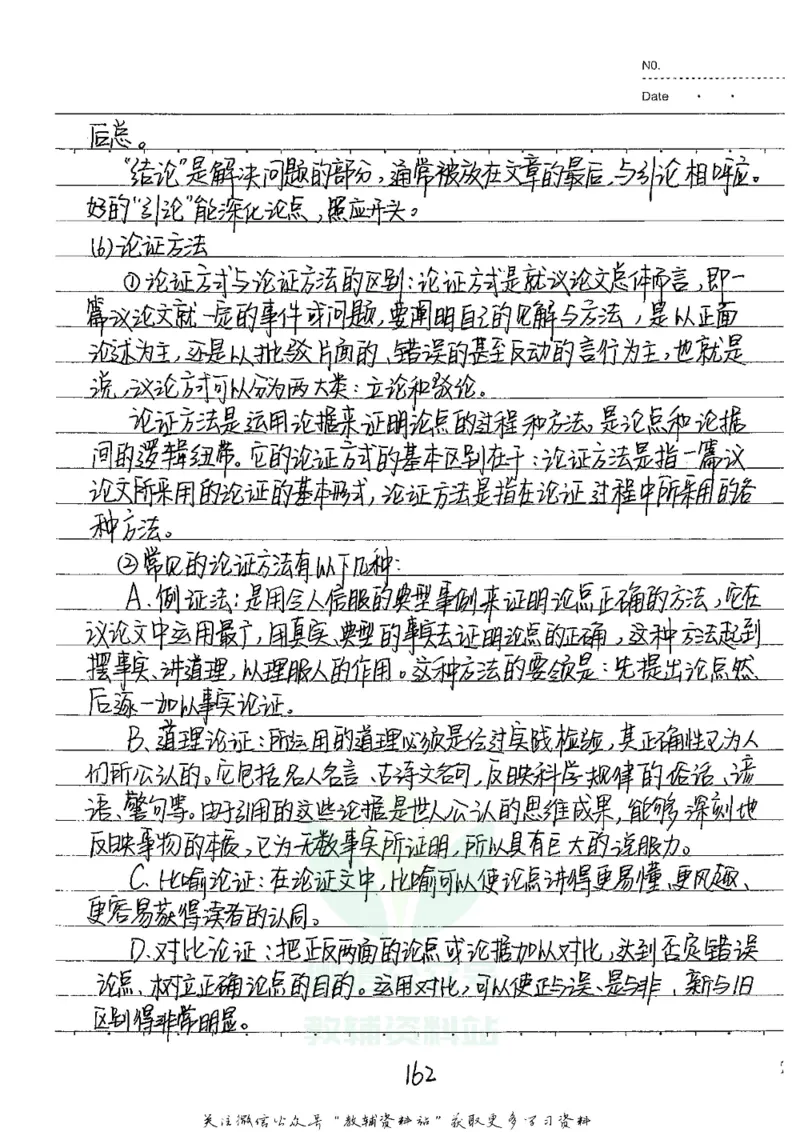 NO.
Date
后总。
"结论"是解决问题的部分,通常被放在文章的最后,与引论相呼应。
好的"引论"能深化论点,照应开头。
(6)论证方法
①论证方式与论证方法的区别:论证方式是就议论文总体而言,即一
篇议论文就一定的事件或问题,要阐明自己的见解与方法,是以正面
论述为主,还是以批驳片面的、错误的甚至反动的言行为主,也就是
说,议论方式可以分为两大类:立论和驳论。
论证方法是运用论据来证明论点的过程和方法。是论点和论据
间的逻辑纽带。它的论证方式的基本区别在于:论证方法是指一篇议
论文所采用的论证的基本形式,论证方法是指在论证过程中所采用的各
种方法。
②常见的论证方法有以下几种:
A.例证法:是用令人信服的典型事例来证明论点正确的方法,它在
议论文中运用最广,用真实、典型的事实去证明论点的正确,这种方法起到
摆事实、讲道理,以理服人的作用。这种方法的要领是:先提出论点然
后逐一加以事实论证。
B、道理论证:所运用的道理必须是经过实践检验,其正确性已为人
们所公认的。它包括名人名言、古诗文名句,反映科学规律的俗话、谚
语、警句等。由于引用的这些论据是世人公认的思维成果,能够深刻地
反映事物的本质,已为无数事实所证明,所以具有巨大的说服力。
C.比喻论证:在论证文中,比喻可以使论点讲得更易懂、更风趣、
更容易获得读者的认同。
D.对比论证:把正反两面的论点或论据加以对比,达到否定错误
论点、树立正确论点的目的。运用对比,可以使正与误、是与非、新与旧
区别得非常明显。
教辅资料站
162
关注微信公众号"教辅资料站"获取更多学习资料